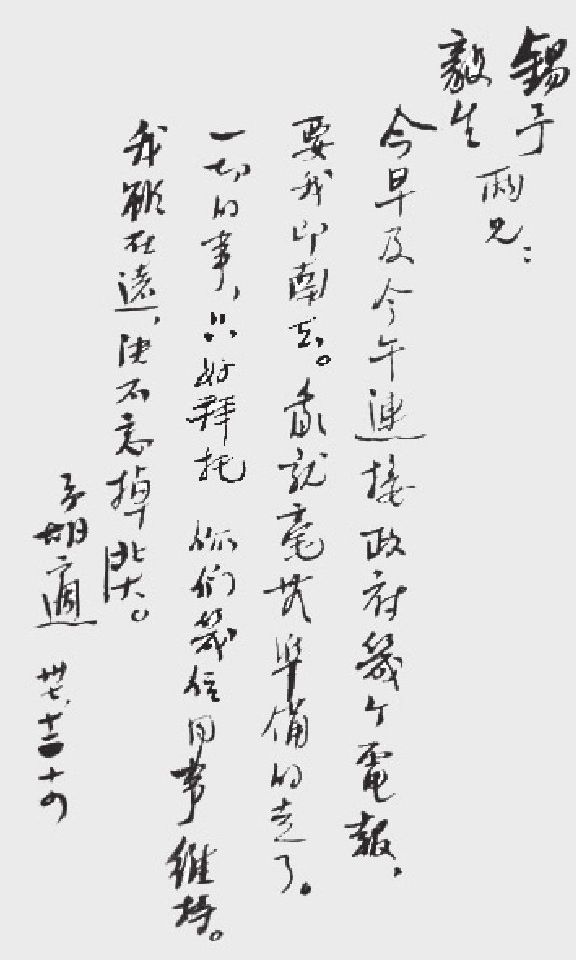 錫予
毅生 兩兄：
今早及今午連接政府幾个電報，
要我即南去。我就毫無準備的走了。
一切的事，只好拜托你们幾位同事維持。
我雖在遠，決不忘掉北大。
弟胡適 卅七，十二，十四